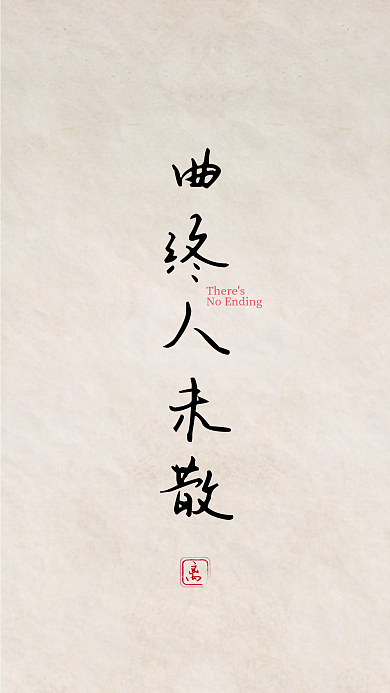 曲终人未散
There's
No Ending
离